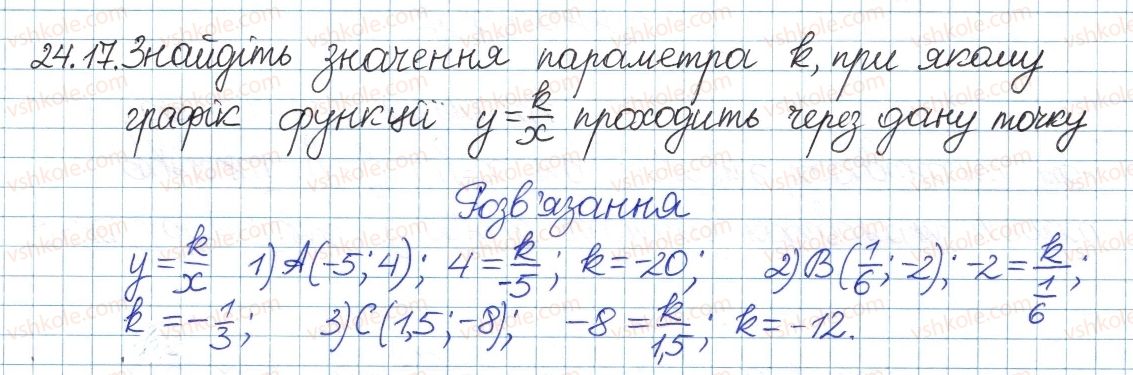 24.17. Знайдіть значення параметра k, при якому
графік функції y = k/x проходить через дану точку
Розв'язання
y = k/x 1) A(-5; 4); 4 = k/-5; k = -20; 2) B(1/6; -2); -2 = k/(1/6);
k = -1/3; 3) C(1,5; -8); -8 = k/1,5; k = -12.